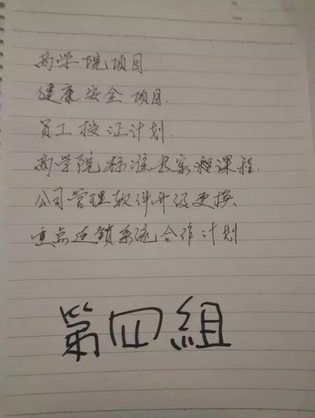 商学院项目
健康安全项目
员工授证计划
商学院标准 课程
公司管理软件升级更换
重点连锁系统合作计划
第四組